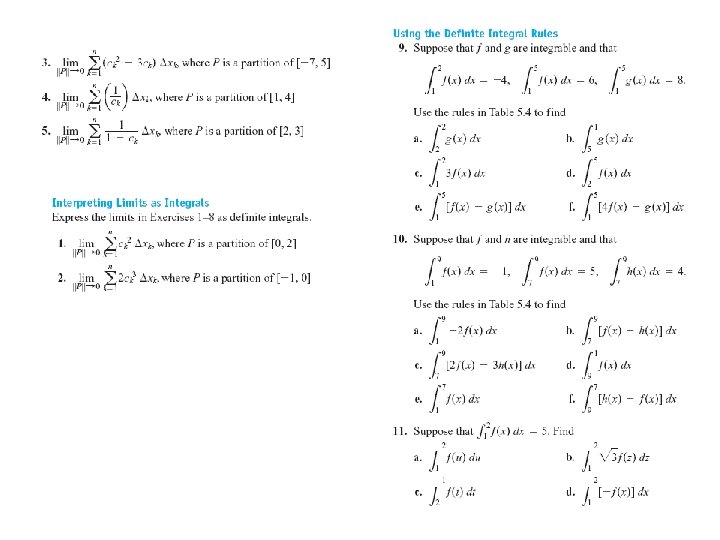 3. lim ‖P‖→0 ∑ k=1 n (c_k² − 3c_k) Δx_k, where P is a partition of [−7, 5]
4. lim ‖P‖→0 ∑ k=1 n (1/c_k) Δx_k, where P is a partition of [1, 4]
5. lim ‖P‖→0 ∑ k=1 n 1/(1 − c_k) Δx_k, where P is a partition of [2, 3]
Interpreting Limits as Integrals
Express the limits in Exercises 1–8 as definite integrals.
1. lim ‖P‖→0 ∑ k=1 n c_k² Δx_k, where P is a partition of [0, 2]
2. lim ‖P‖→0 ∑ k=1 n 2c_k³ Δx_k, where P is a partition of [−1, 0]
Using the Definite Integral Rules
9. Suppose that f and g are integrable and that
∫₁² f(x) dx = −4, ∫₁⁵ f(x) dx = 6, ∫₁⁵ g(x) dx = 8.
Use the rules in Table 5.4 to find
a. ∫₂² g(x) dx b. ∫₅¹ g(x) dx
c. ∫₁² 3f(x) dx d. ∫₂⁵ f(x) dx
e. ∫₁⁵ [f(x) − g(x)] dx f. ∫₁⁵ [4f(x) − g(x)] dx
10. Suppose that f and h are integrable and that
∫₁⁹ f(x) dx = 1, ∫₇⁹ f(x) dx = 5, ∫₇⁹ h(x) dx = 4.
Use the rules in Table 5.4 to find
a. ∫₁⁹ −2f(x) dx b. ∫₇⁹ [f(x) − h(x)] dx
c. ∫₇⁹ [2f(x) − 3h(x)] dx d. ∫₉¹ f(x) dx
e. ∫₁⁷ f(x) dx f. ∫₉⁷ [h(x) − f(x)] dx
11. Suppose that ∫₁² f(x) dx = 5. Find
a. ∫₁² f(u) du b. ∫₁² √3 f(z) dz
c. ∫₂¹ f(t) dt d. ∫₁² [−f(x)] dx